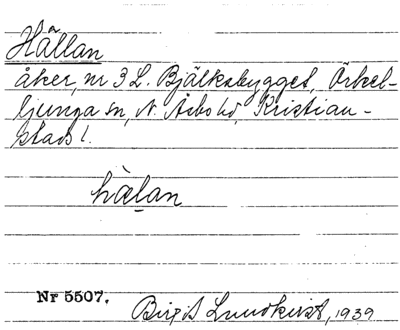 Hällan
åker, nr 3 L. Bjälkabygget, Örkel-
ljunga sn, N. Åsbo hd, Kristian-
stads l.
hæ̀lan
Nr 5507.
Birgit Lundkvist, 1939